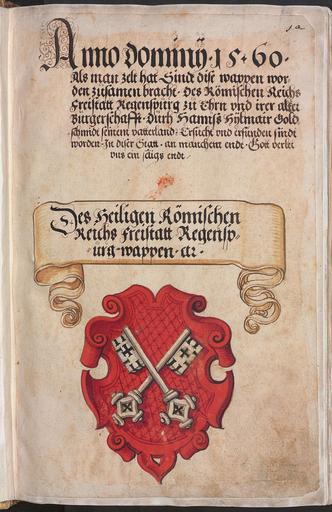 1a
Anno dominij · 15 · 60 ·
Als man zelt hat · Sindt dise wappen wor
den zusamen bracht · Des Römischen Reichs
Freistatt Regenspurg zu Ehrn vnd irer alter
Burgerschafft · Durch Hannss Hylmair Gold
schmidt seinem vatterland · Ersucht vnd erfunden sindt
worden · In diser Statt · an manchem ende · Gott verlei
vns ein seligs endt
Des Heiligen Römischen
Reichs Freistatt Regensp
urg · wappen · etc ·